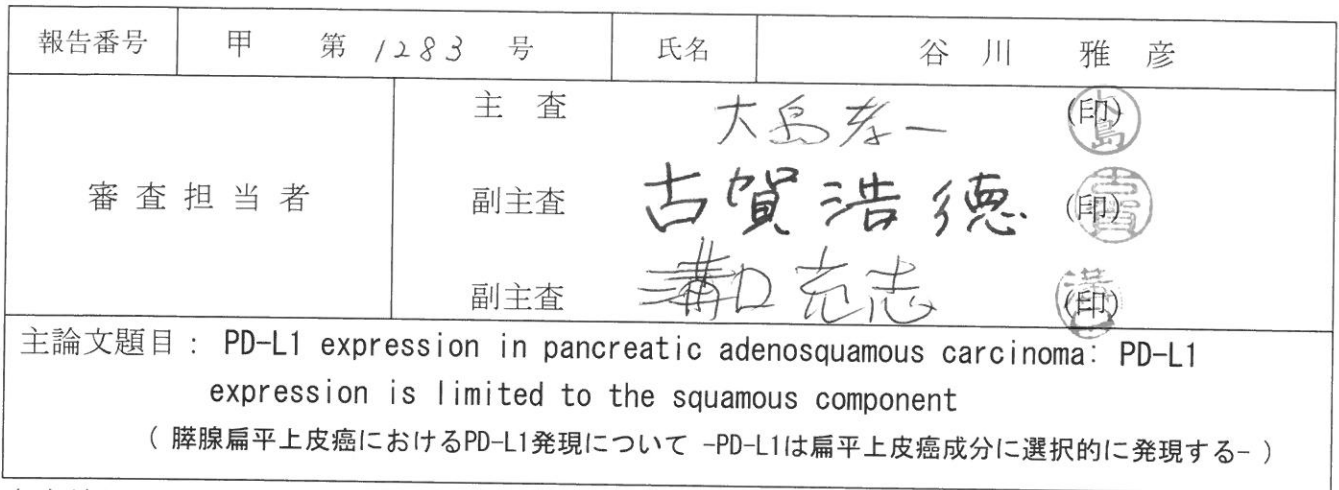 報告番号 甲 第 1283 号 氏名 谷川 雅彦
審査担当者
主査 大島孝一 (印)
副主査 古賀浩徳 (印)
副主査 溝口充志 (印)
主論文題目： PD-L1 expression in pancreatic adenosquamous carcinoma: PD-L1
expression is limited to the squamous component
（ 膵腺扁平上皮癌におけるPD-L1発現について -PD-L1は扁平上皮癌成分に選択的に発現する- ）